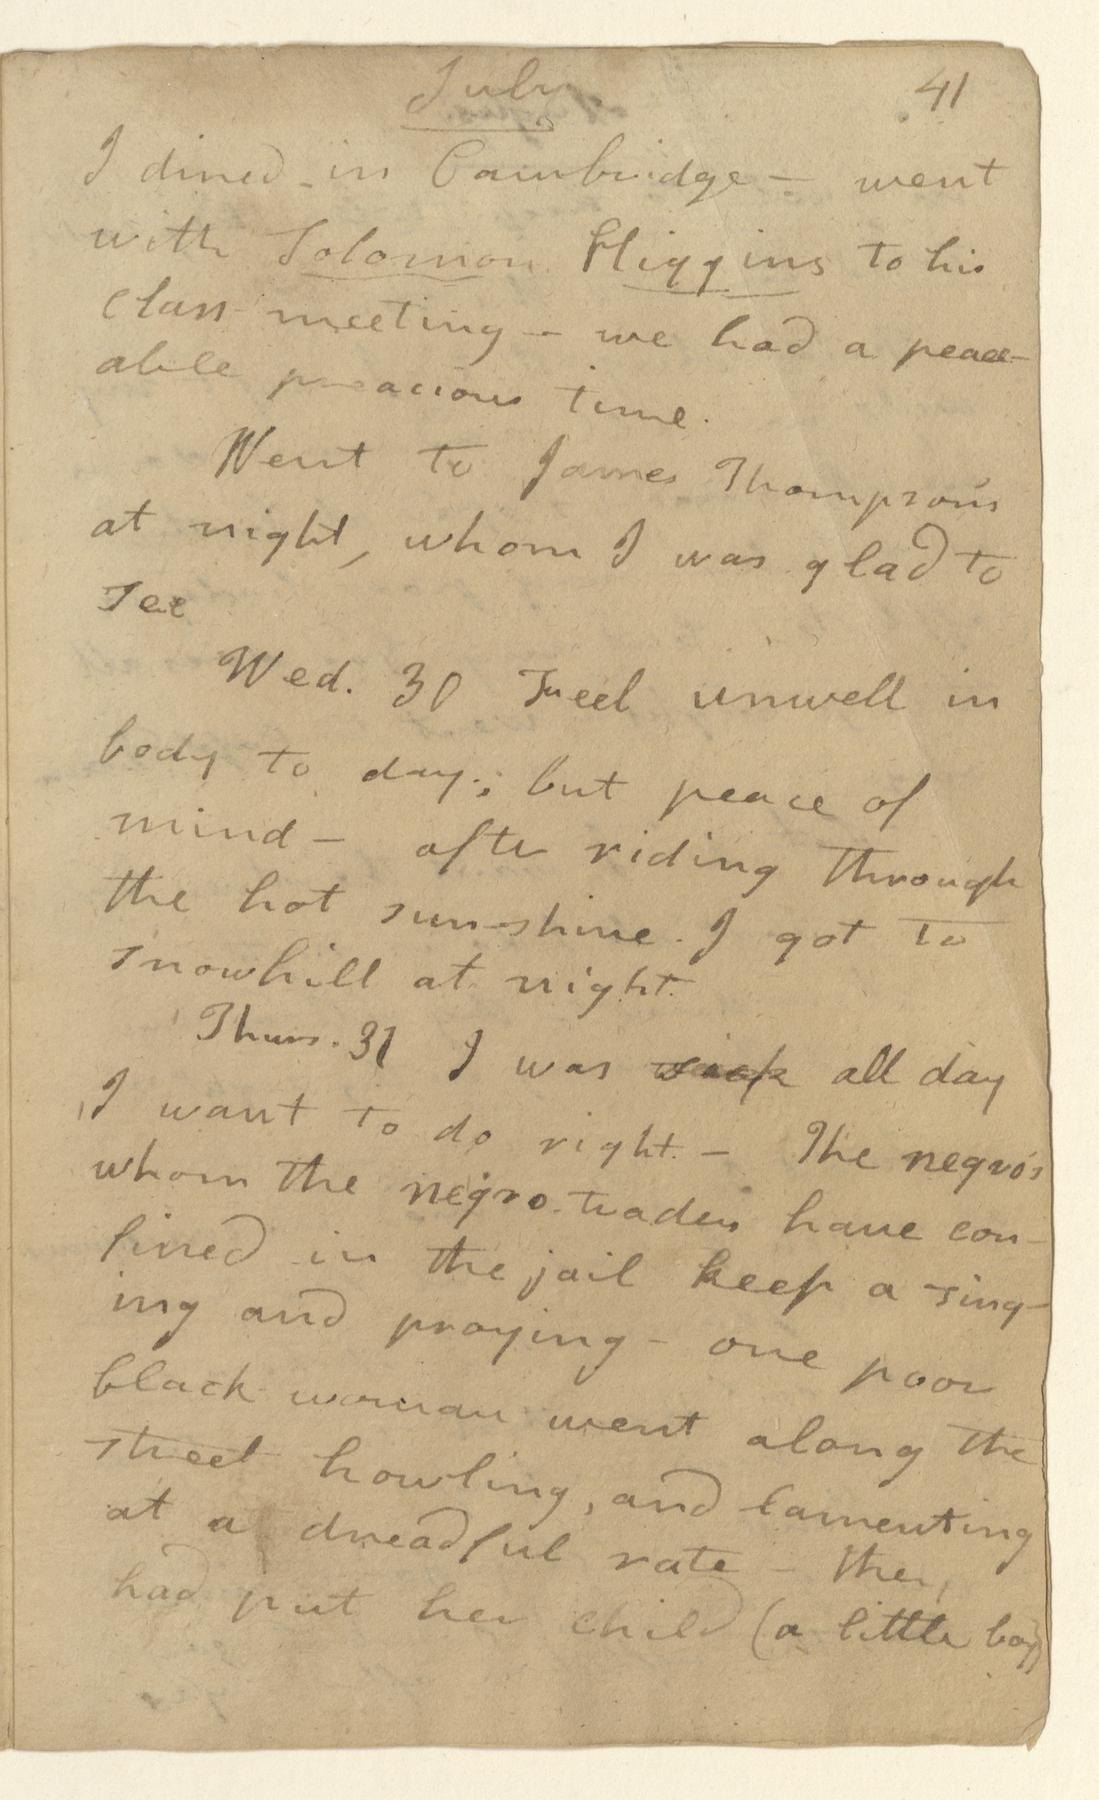 July
41
I dined in Cambridge — went
with Solomon Higgins to his
class meeting — we had a peace-
able preacious time.
Went to James Thompson's
at night, whom I was glad to
see
Wed. 30 I feel unwell in
body to day; but peace of
mind — after riding through
the hot sun-shine. I got to
snowhill at night.
Thurs. 31 I was sick all day
I want to do right. — The negro's
whom the negro traders have con-
fined in the jail keep a sing-
ing and praying — one poor
black woman went along the
street howling, and lamenting
at a dreadful rate — they
had put her child (a little boy)